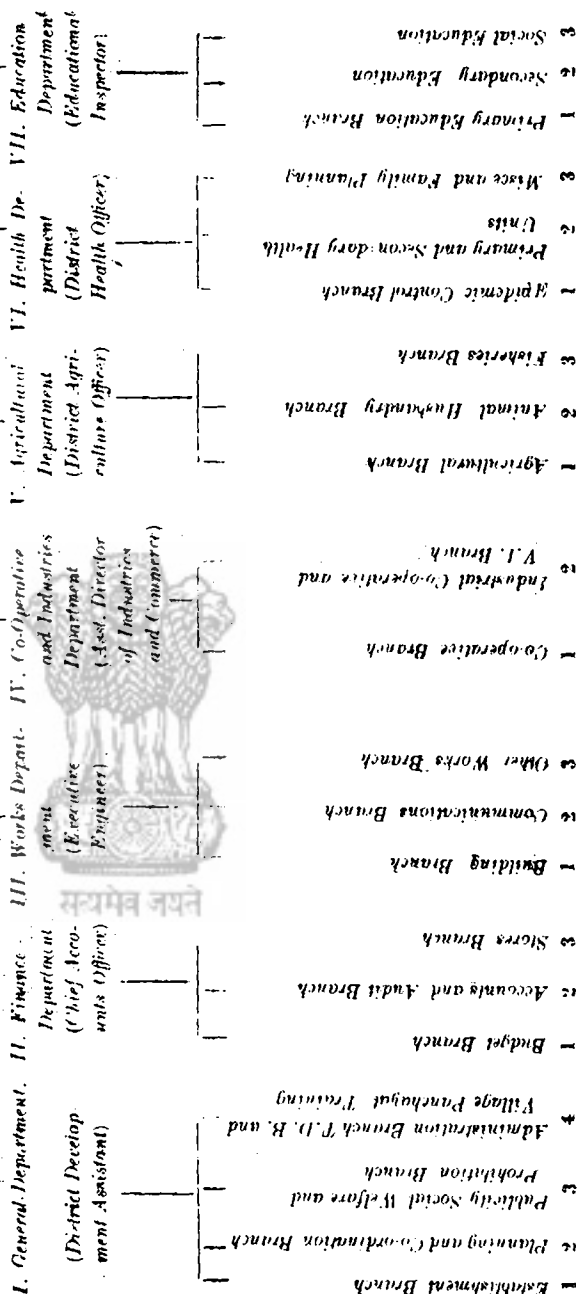 I. General Department.
(District Develop-
ment Assistant)
1 Establishment Branch
2 Planning and Co-ordination Branch
3 Publicity Social Welfare and
Prohibition Branch
4 Administration Branch T.D.B. and
Village Panchayat Training
II. Finance
Department
(Chief Acco-
unts Officer)
1 Budget Branch
2 Accounts and Audit Branch
3 Stores Branch
III. Works Depart-
ment
(Executive
Engineer)
1 Building Branch
2 Communications Branch
3 Other Works Branch
IV. Co-Operative
and Industries
Department
(Asst. Director
of Industries
and Commerce)
1 Co-operative Branch
2 Industrial Co-operative and
V.I. Branch
V. Agricultural
Department
(District Agri-
culture Officer)
1 Agricultural Branch
2 Animal Husbandry Branch
3 Fisheries Branch
VI. Health De-
partment
(District
Health Officer)
1 Epidemic Control Branch
2 Primary and Secondary Health
Units
3 Misce and Family Planning
VII. Education
Department
(Educational
Inspector)
1 Primary Education Branch
2 Secondary Education
3 Social Education
सत्यमेव जयते